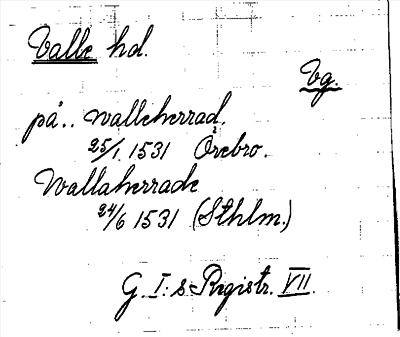 Valle hd.
Vg.
på.. Walleherrad.
25/1 1531 Örebro.
Wallaherrade
24/6 1531 (Sthlm.)
G. I:s Registr. VII.